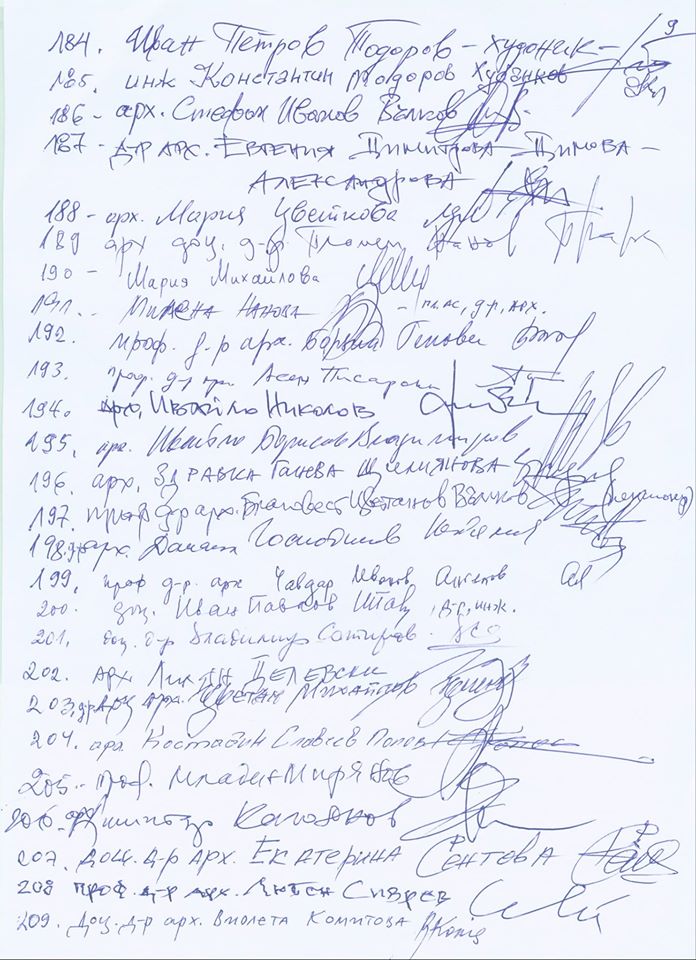 9
184. Иван Петров Тодоров – художник –
185. инж Константин Тодоров
186 – арх. Стефан Иванов Вълков
187 – д-р арх. Евгения Димитрова – Димова –
Александрова
188 – арх. Мария Цветкова
189 арх доц. д-р Пламен
190 – Мария Михайлова
191. – Милена Нанова – гл.ас, д-р, арх.
192. проф. д-р арх. Генова
193. проф. д-р Асен Писарски
194. арх. Ивайло Николов
195. арх. Ивайло Борисов Владимиров
196. арх. Здравка Ганева
197. проф д-р арх. Благовест Цветанов Вълков (пенсионер)
198. д-р арх. Данаил Господинов
199. проф д-р. арх Чавдар Иванов Ангелов
200. доц. Иван Павлов д-р, инж.
201. доц. д-р Владимир Сотиров
202. арх. Делевски
203. арх. Цветан Михайлов
204. арх Костадин Славеев Попов
205. – проф. Младен
206. арх Димитър
207. Доц. д-р арх. Екатерина Сентова
208 проф. д-р арх. Сиврев
209. Доц. д-р арх. Виолета Комитова